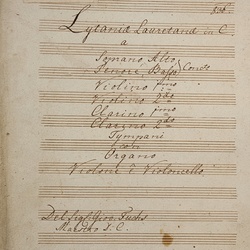 Lytaniæ Lauretanæ in C
a
Soprano, Alto,
Tenore, Basso Conc:te
Violino 1mo
Violino 2do
Clarino 1mo
Clarino 2do
Tympani
con
Organo
Violone è Violoncello
Del Sigre Giov. Fuchs